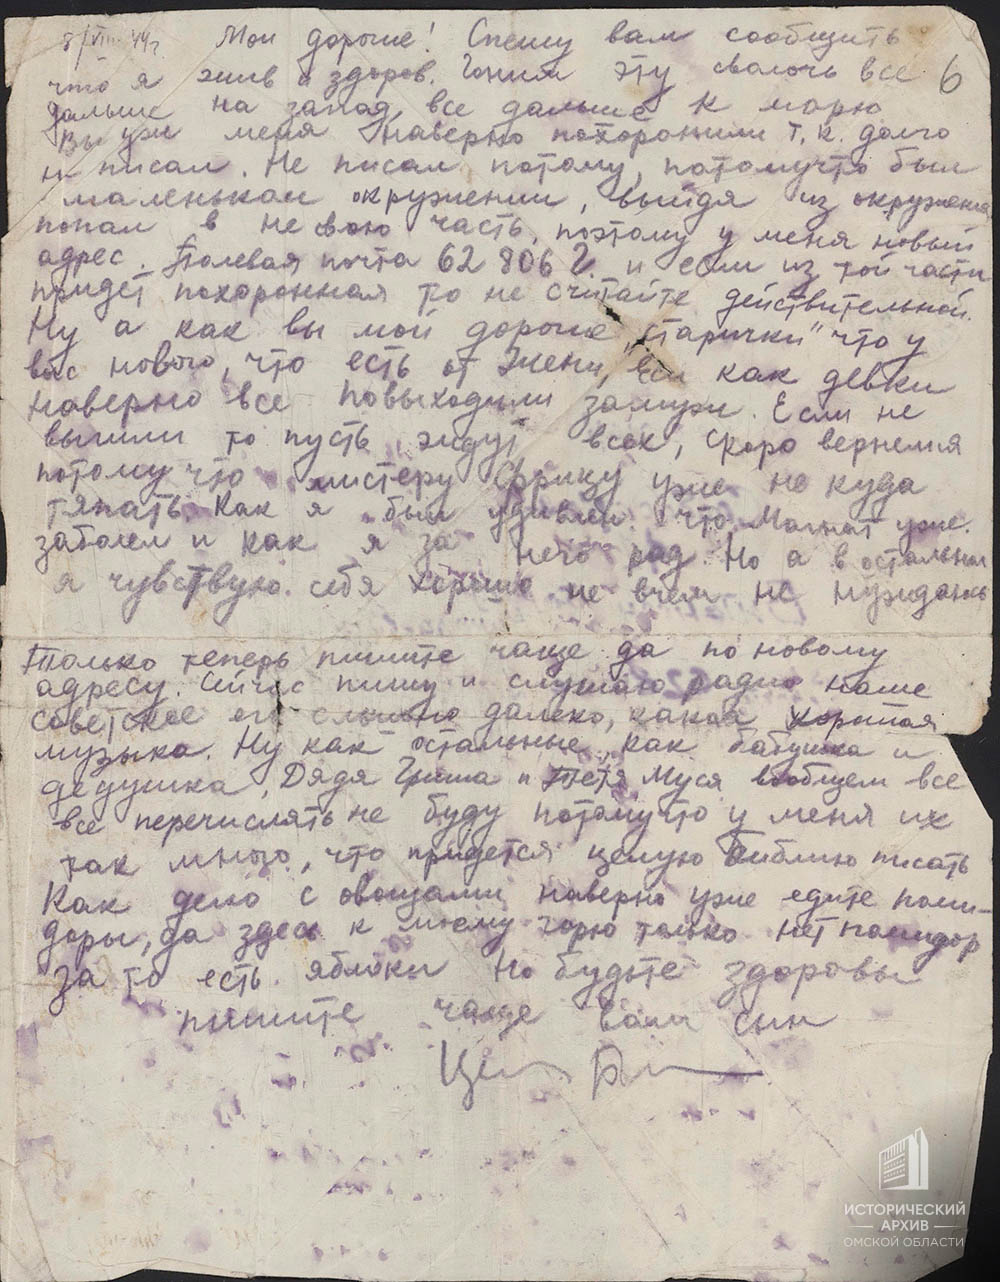 8/VIII-44г Мои дорогие! Спешу вам сообщить
что я жив и здоров. Гоним эту сволочь все 6
дальше на запад, все дальше к морю
Вы уж меня наверно похоронили т.к. долго
не писал. Не писал потому, потомучто был
маленьком окружении, выйдя из окружения
попал в не свою часть, поэтому у меня новый
адрес. Полевая почта 62806 Г. и если из той части
придет похоронная то не считайте действительной.
Ну а как вы мои дорогие „старички" что у
вас нового, что есть от Жени, как девки
наверно все повыходили замуж. Если не
вышли то пусть ждут всех, скоро вернемся
потому что мистеру Фрицу уже не куда
тяпать. Как я был удивлен что уже
заболел и как я за него рад. Но а в остальном
я чувствую себя хорошо не в чем не нуждаюсь
Только теперь пишите чаще да по новому
адресу. Сейчас пишу и слушаю радио наше
советское его слышно далеко, какая хорошая
музыка. Ну как остальные, как бабушка и
дедушка, Дядя Гриша и Тетя Муся вообщем все
все перечислять не буду потомучто у меня их
так много, что придется целую Библию писать
Как дело с овощами наверно уже едите поми-
доры, да здесь к моему горю только нет помидор
за то есть яблоки Но будьте здоровы
пишите чаще ваш сын
ИСТОРИЧЕСКИЙ
АРХИВ
ОМСКОЙ ОБЛАСТИ